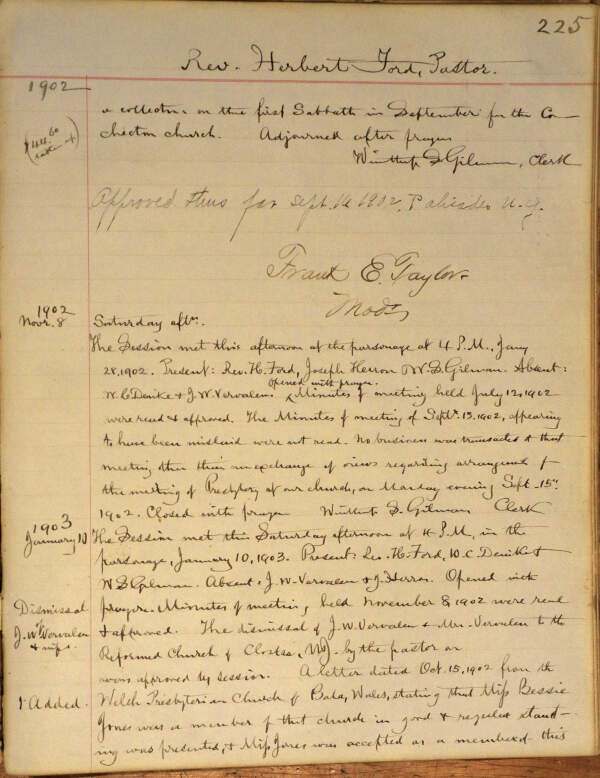 225
Rev. Herbert Ford, Pastor.
1902
a collection on the first Sabbath in September for the Co-
checton church. Adjourned after prayer
Winthrop S. Gilman, Clerk
Approved thus far Sept. 16 1902, Palisades N.Y.
Frank E. Taylor
Modr
1902
Novr. 8
Saturday aftn.
The Session met this afternoon at the parsonage at 4 P.M., Jany
28, 1902. Present: Rev. H. Ford, Joseph Herron W. S. Gilman. Absent:
opened with prayer.
W. C. Denike & J. W. Vervalen. Minutes of meeting held July 12, 1902
were read & approved. The Minutes of meeting of Sept. 13, 1902, appearing
to have been mislaid were not read. No business was transacted at that
meeting other than an exchange of views regarding arrangements for
the meeting of Presbytery at our church, on Monday evening Sept. 15th
1902. Closed with prayer Winthrop S. Gilman Clerk
1903
January 10
The Session met this Saturday afternoon at 4 P.M. in the
parsonage, January 10, 1903. Present: Rev. H. Ford, W. C. Denike &
W S Gilman. Absent: J. W. Vervalen & J. Herron. Opened with
prayer. Minutes of meeting held November 8, 1902 were read
Dismissal
J. W. Vervalen
& wife.
& approved. The dismissal of J. W. Vervalen & Mrs. Vervalen to the
Reformed Church of Closter, N.J. by the pastor
was approved by session. A letter dated Oct. 15, 1902 from the
1 Added.
Welch Presbyterian Church of Bala, Wales, stating that Miss Bessie
Jones was a member of that church in good & regular stand-
ing was presented, & Miss Jones was accepted as a member of this